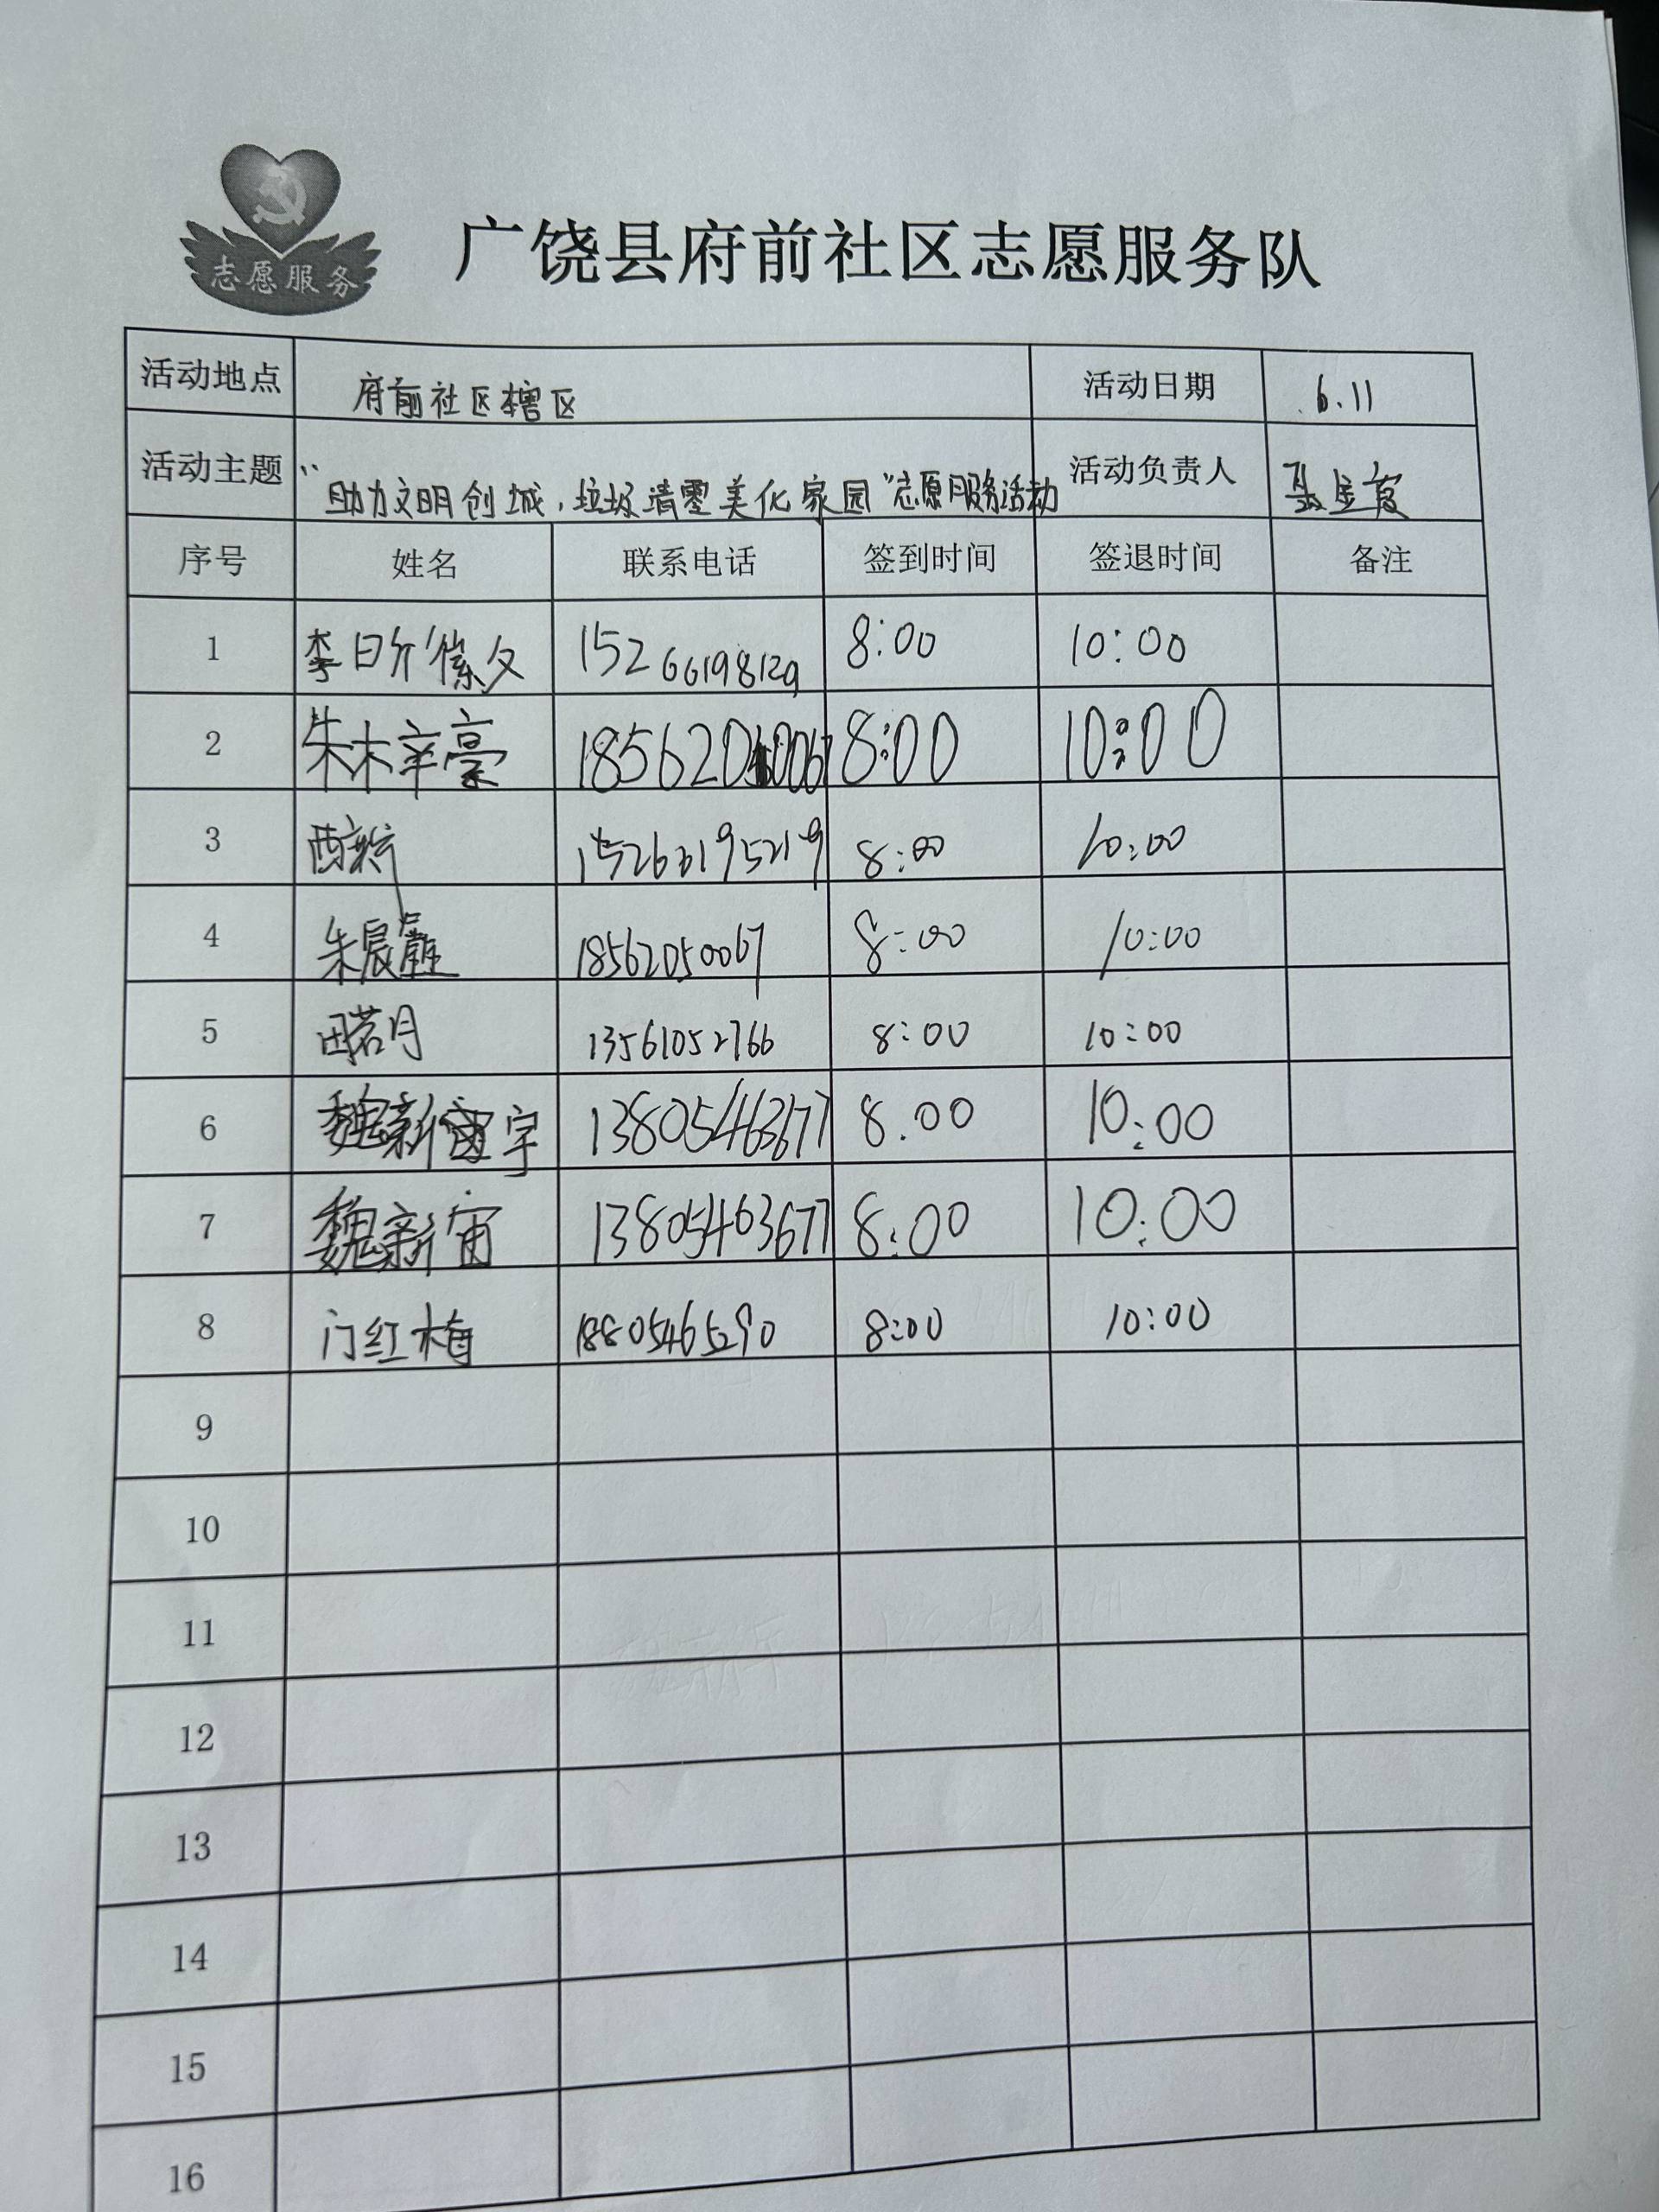 志愿服务
广饶县府前社区志愿服务队
活动地点 府前社区辖区 活动日期 6.11
活动主题 “助力文明创城,垃圾清零美化家园”志愿服务活动 活动负责人
序号 姓名 联系电话 签到时间 签退时间 备注
1 李 15266198129 8:00 10:00
2 朱梓豪 8:00 10:00
3 8:00 10:00
4 朱晨 18562050067 8:00 10:00
5 田若月 13561052766 8:00 10:00
6 魏新宇 13805463677 8.00 10:00
7 魏新宙 13805463677 8:00 10:00
8 门红梅 18805465290 8:00 10:00
9
10
11
12
13
14
15
16